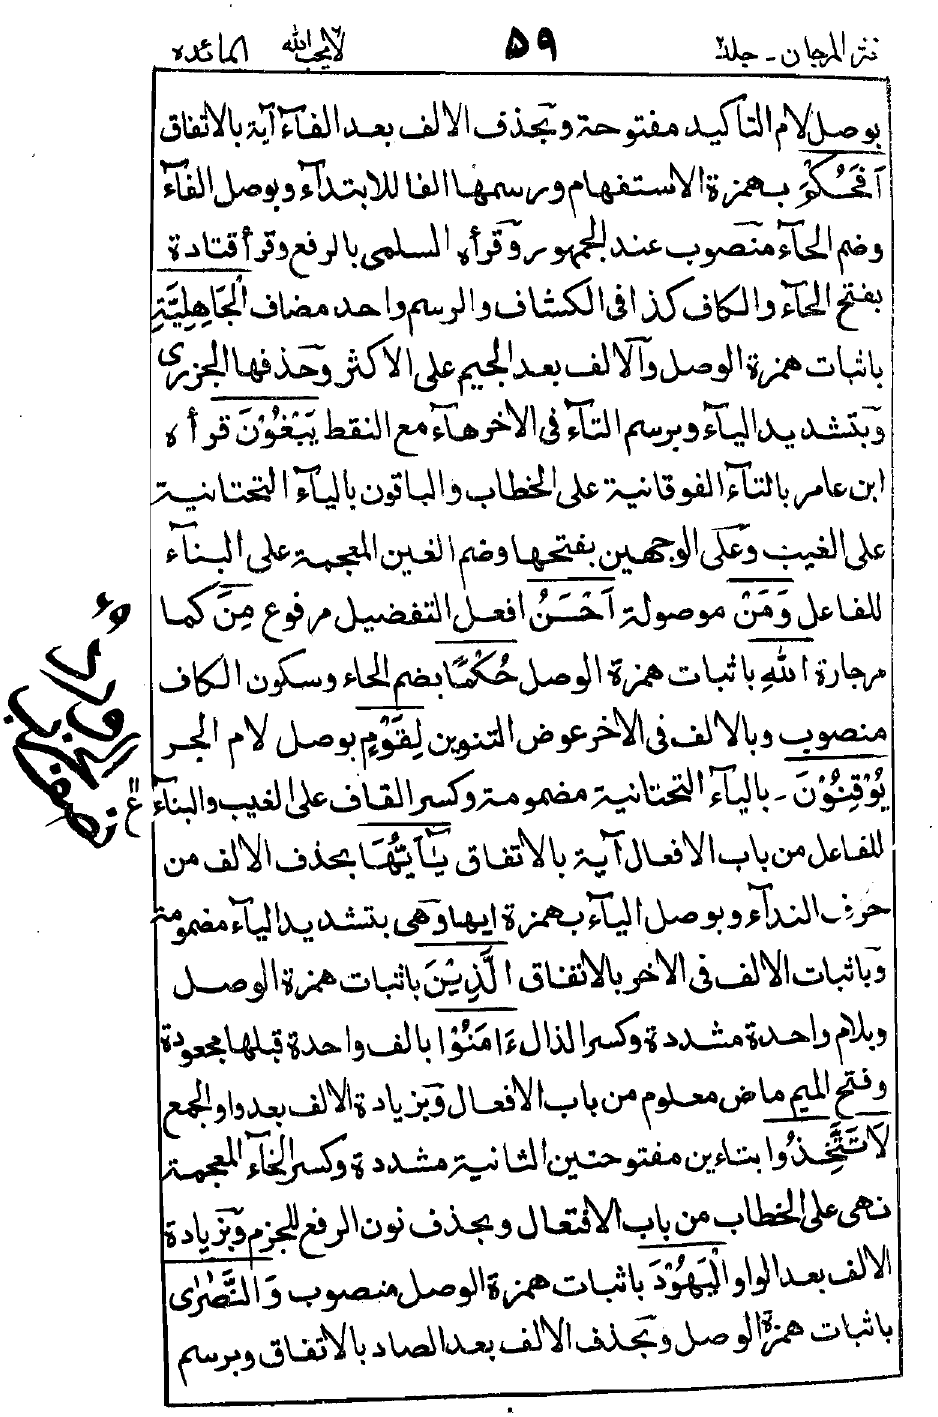 نثر المرجان - جلد٢ ٥٩ لا يحب الله المائده
بوصل لام التأكيد مفتوحة وبحذف الالف بعد الفآء آية بالاتفاق
اَفَحُكْمَ بهمزة الاستفهام ورسمها الفا للابتدآء وبوصل الفآء
وضم الحآء منصوب عند الجمهور وقرأه السلمى بالرفع وقرأ قتادة
بفتح الحآء والكاف كذا فى الكشاف والرسم واحد مضاف الْجَاهِلِيَّةِ
باثبات همزة الوصل والالف بعد الجيم على الاكثر وحذفها الجزرى
وبتشديد اليآء وبرسم التآء فى الاخر هآء مع النقط يَبْغُوْنَ قرأه
ابن عامر بالتآء الفوقانية على الخطاب والباقون باليآء التحتانية
على الغيب وعلى الوجهين بفتحها وضم الغين المعجمة على البنآء
للفاعل وَمَنْ موصولة اَحْسَنُ افعل التفضيل مرفوع مِنَ كما
مرجارة اللهِ باثبات همزة الوصل حُكْمًا بضم الحاء وسكون الكاف
منصوب وبالالف فى الاخر عوض التنوين لِقَوْمٍ بوصل لام الجر
يُوْقِنُوْنَ - باليآء التحتانية مضمومة وكسر القاف على الغيب والبنآء
للفاعل من باب الافعال آية بالاتفاق يٰاَيُّهَا بحذف الالف من
حرف الندآء وبوصل اليآء بهمزة ايها وهى بتشديد اليآء مضمومة
وباثبات الالف فى الاخر بالاتفاق الَّذِيْنَ باثبات همزة الوصل
وبلام واحدة مشددة وكسر الذال ءَامَنُوْا بالف واحدة قبلها مجعودة
وفتح الميم ماض معلوم من باب الافعال وبزيادة الالف بعد واو الجمع
لَاتَتَّخِذُوا بتاءين مفتوحتين الثانية مشددة وكسر الخآء المعجمة
نهى على الخطاب من باب الافتعال وبحذف نون الرفع للجزم وبزيادة
الالف بعد الواو الْيَهُوْدَ باثبات همزة الوصل منصوب وَالنَّصٰرٰى
باثبات همزة الوصل وبحذف الالف بعد الصاد بالاتفاق وبرسم
ع